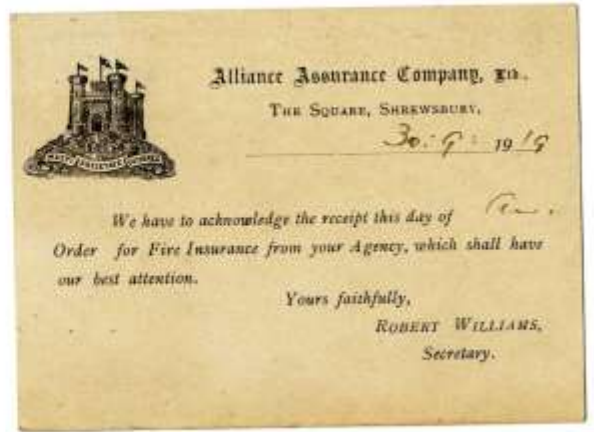 Alliance Assurance Company, Ltd.
THE SQUARE, SHREWSBURY,
30. 9. 1919
We have to acknowledge the receipt this day of
Order for Fire Insurance from your Agency, which shall have
our best attention.
Yours faithfully,
ROBERT WILLIAMS,
Secretary.